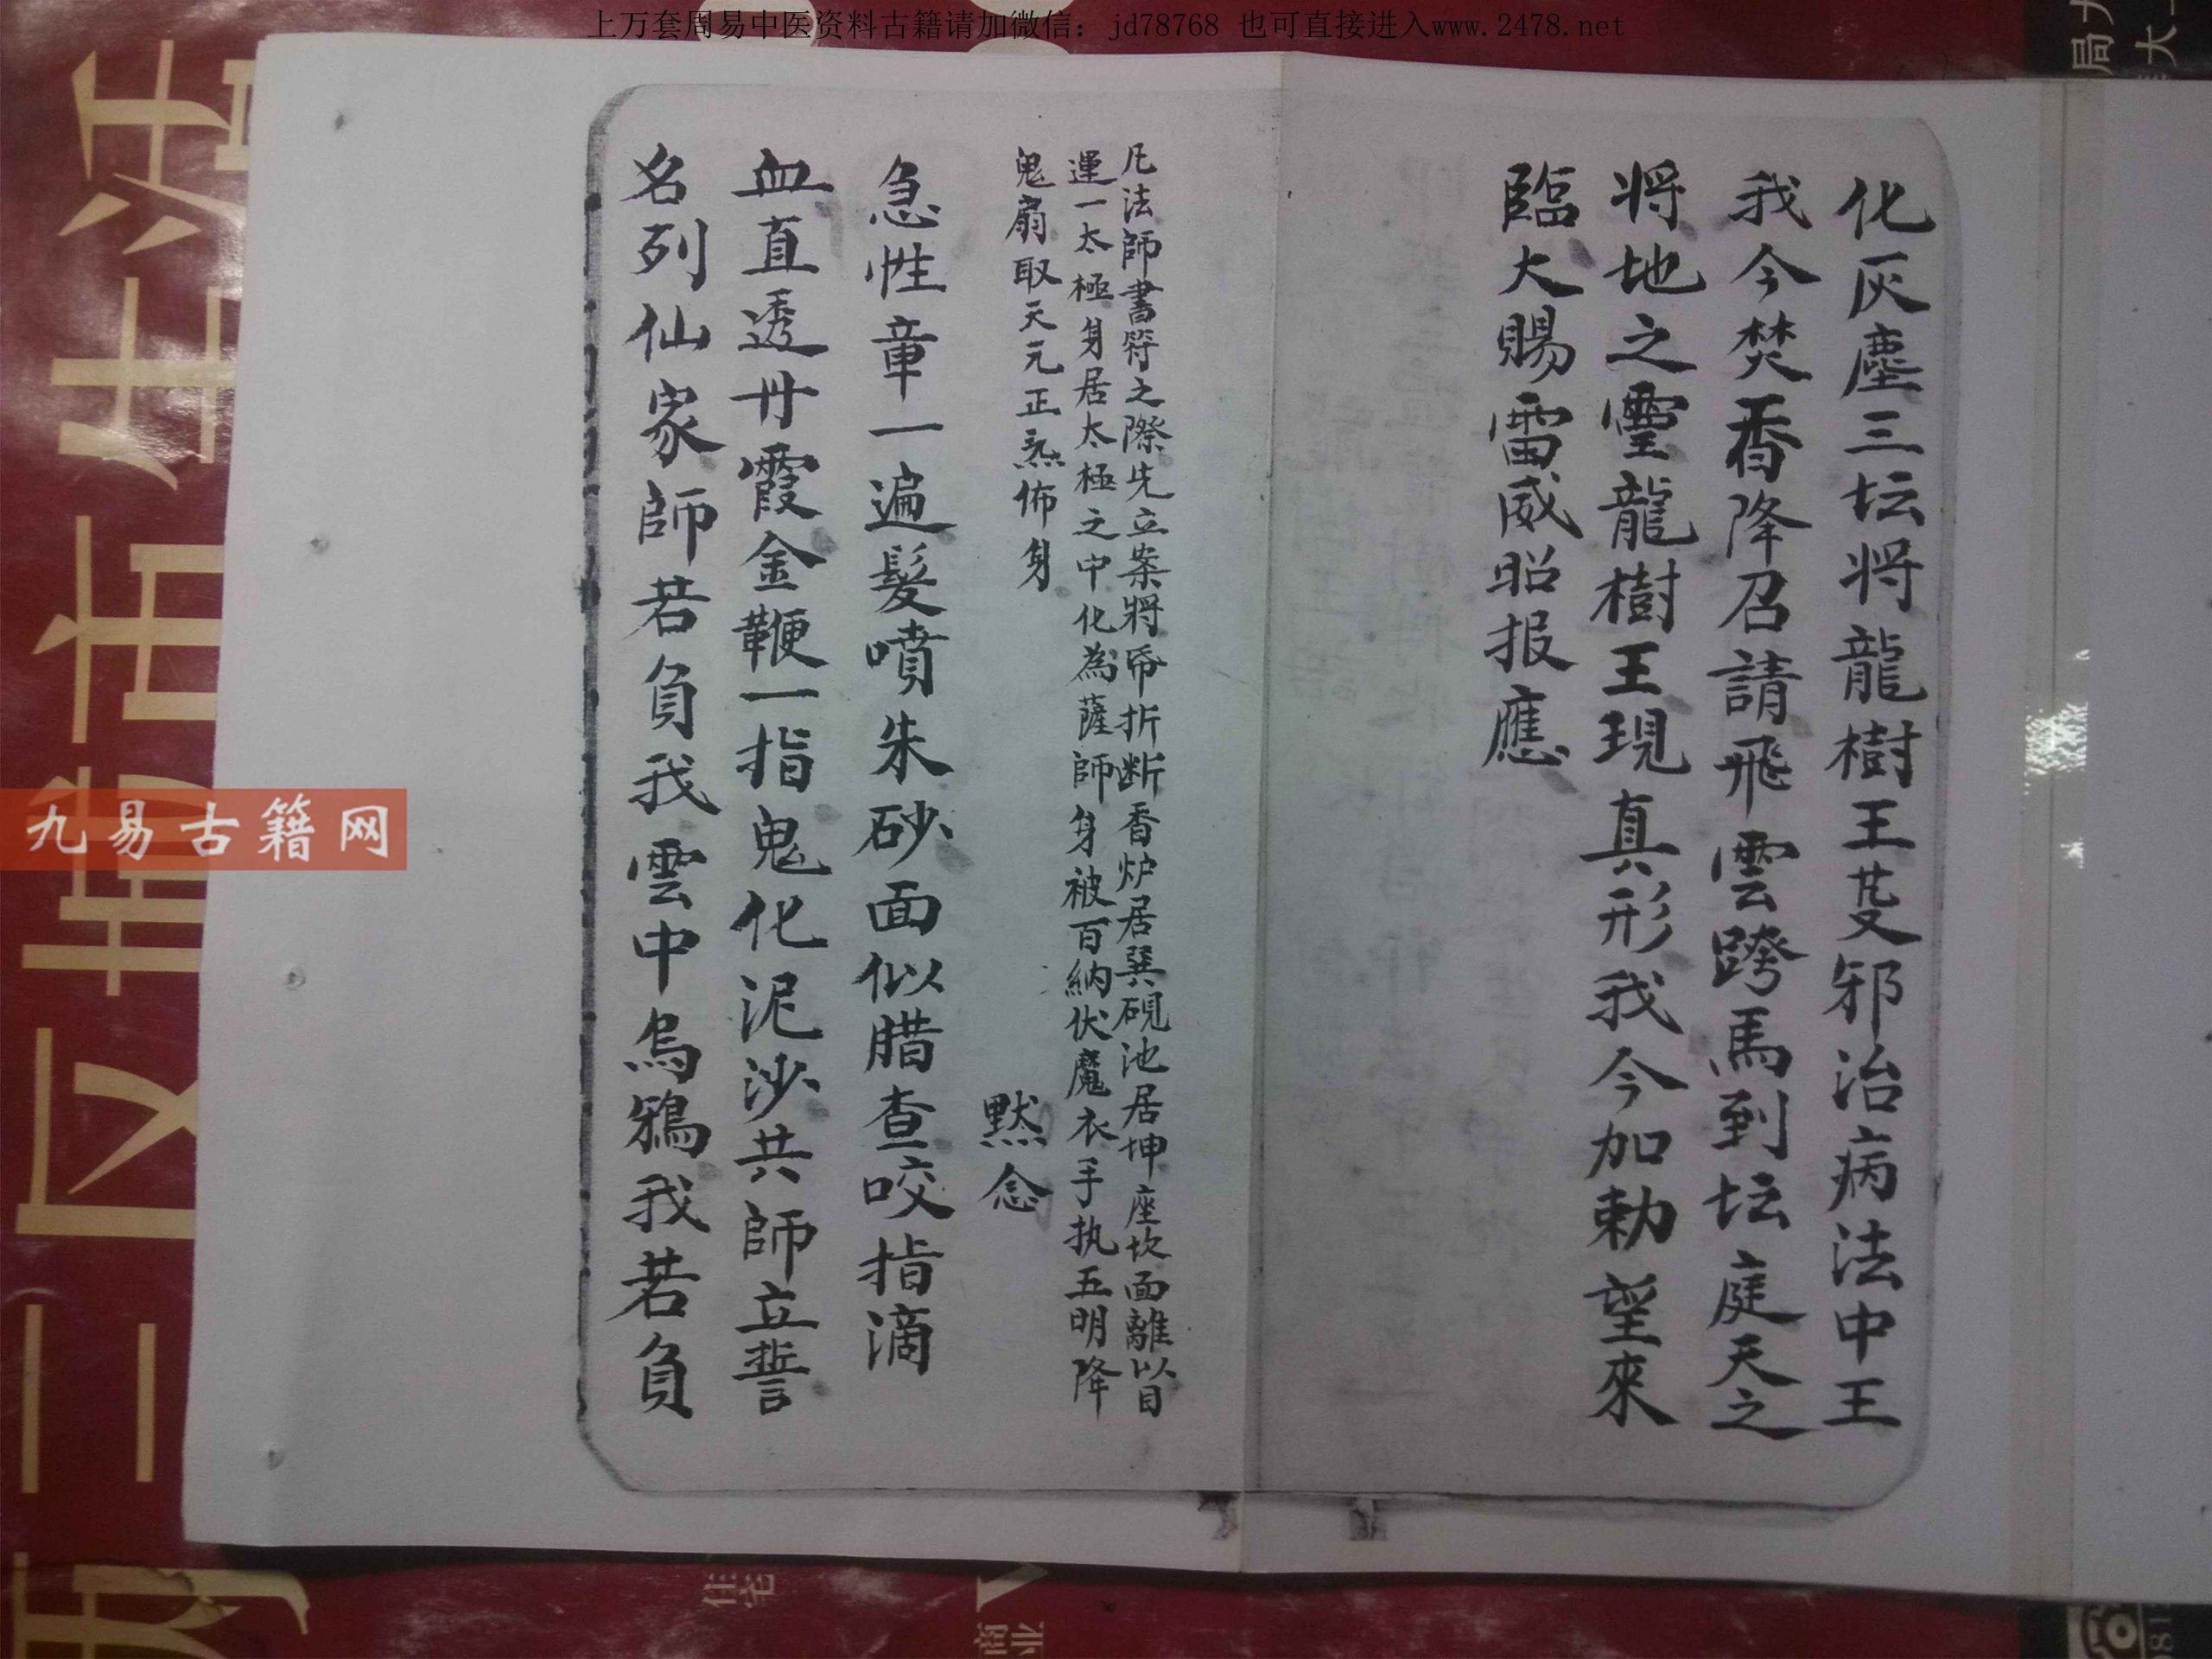 上万套周易中医资料古籍请加微信：jd78768 也可直接进入www.2478.net
化灰塵三坛将龍樹王芟邪治病法中王
我今焚香降召請飛雲跨馬到坛庭天之
将地之霊龍樹王現真形我今加勅望來
臨大賜雷威昭报應
凡法師書符之際先立案將帋折断香炉居巽硯池居坤座坎面離以目
運一太極身居太極之中化為薩師身被百納伏魔衣手执五明降
鬼扇取天元正炁佈身
默念
急性章一遍髮噴朱砂面似腊查咬指滴
血直透丹霞金鞭一指鬼化泥沙共師立誓
名列仙家師若負我雲中烏鴉我若負
九易古籍网
住宅
商业